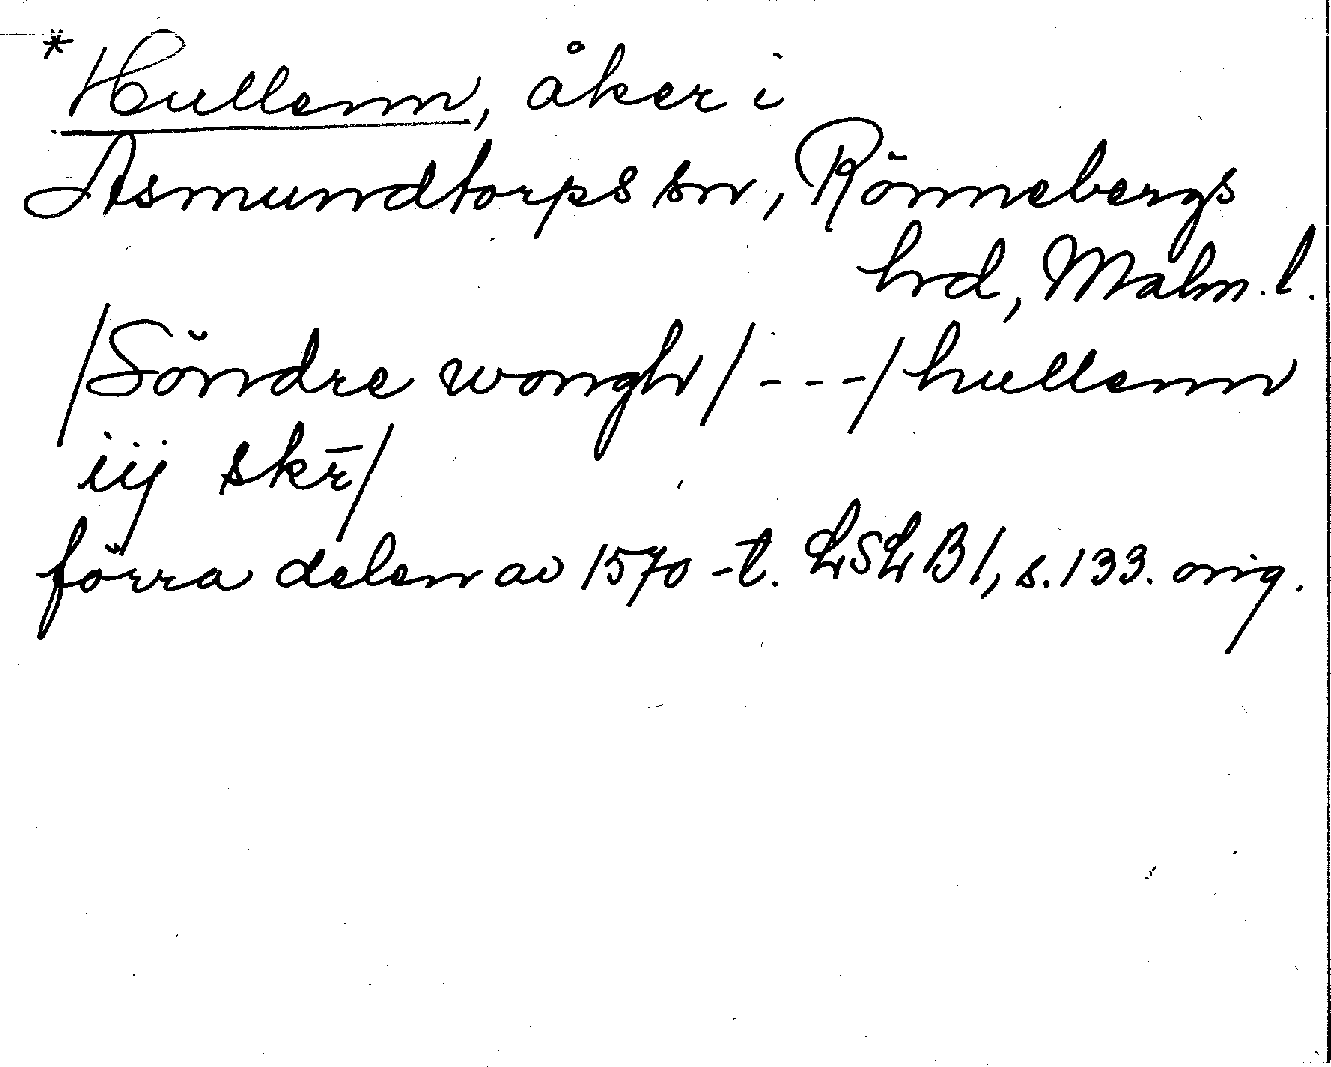 *Hullenn, åker i
Asmundtorps sn, Rönnebergs
hd, Malm. l.
/Söndre wongh/ - - - /hullenn
iij skr̄/
förra delen av 1570-t. LSLB I, s. 133. orig.